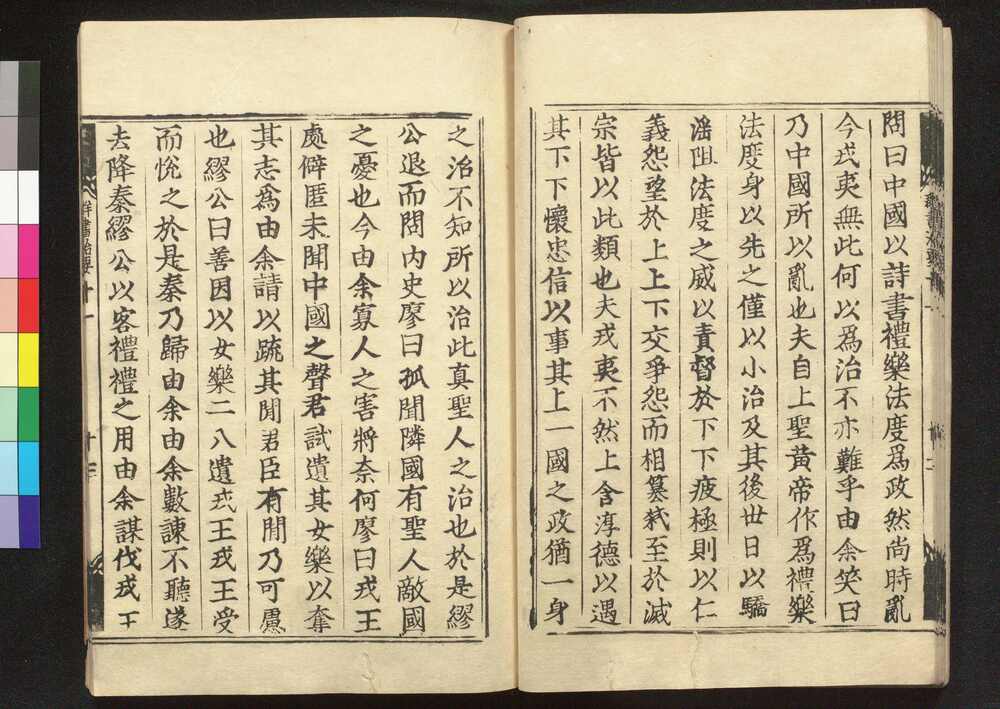 問曰中國以詩書禮樂法度爲政然尚時亂
今戎夷無此何以爲治不亦難乎由余笑曰
乃中國所以亂也夫自上聖黃帝作爲禮樂
法度身以先之僅以小治及其後世日以驕
滛阻法度之威以責督於下下疲極則以仁
義怨望於上上下交爭怨而相篡弑至於滅
宗皆以此類也夫戎夷不然上含淳德以遇
其下下懷忠信以事其上一國之政猶一身
之治不知所以治此真聖人之治也於是繆
公退而問內史廖曰孤聞隣國有聖人敵國
之憂也今由余寡人之害將奈何廖曰戎王
處僻匿未聞中國之聲君試遺其女樂以奪
其志爲由余請以疏其閒君臣有閒乃可慮
也繆公曰善因以女樂二八遺戎王戎王受
而悅之於是秦乃歸由余由余數諫不聽遂
去降秦繆公以客禮禮之用由余謀伐戎王
群書治要十一